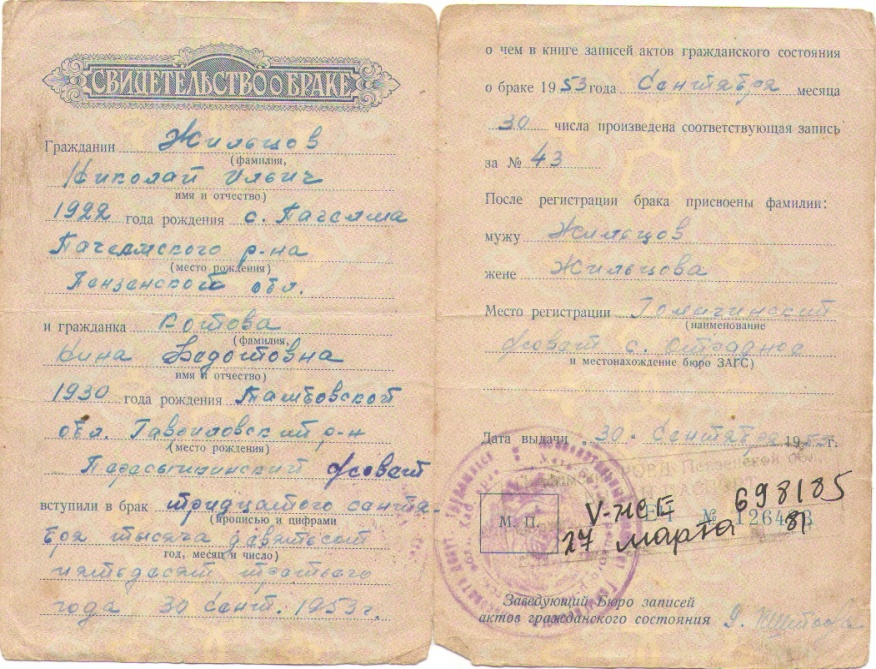 СВИДЕТЕЛЬСТВО О БРАКЕ
Гражданин Жильцов
(фамилия,
Николай Ильич
имя и отчество)
1922 года рождения с. Пачелма
Пачелмского р-на
(место рождения)
Пензенской обл.
и гражданка Котова
(фамилия,
Нина Федотовна
имя и отчество)
1930 года рождения Тамбовской
обл. Гавриловский р-н
(место рождения)
с/совет
вступили в брак тридцатого сентя-
(прописью и цифрами
бря тысяча девятьсот
год, месяц и число)
пятьдесят третьего
года 30 сент. 1953 г.
о чем в книге записей актов гражданского состояния
о браке 1953 года Сентября месяца
30 числа произведена соответствующая запись
за № 43
После регистрации брака присвоены фамилии:
мужу Жильцов
жене Жильцова
Место регистрации
(наименование
с/совет с. Отрадное
и местонахождение бюро ЗАГС)
Дата выдачи „30“ Сентября 1953 г.
М. П.
V-ЖЕ 698185
27 марта 81
№
Заведующий Бюро записей
актов гражданского состояния